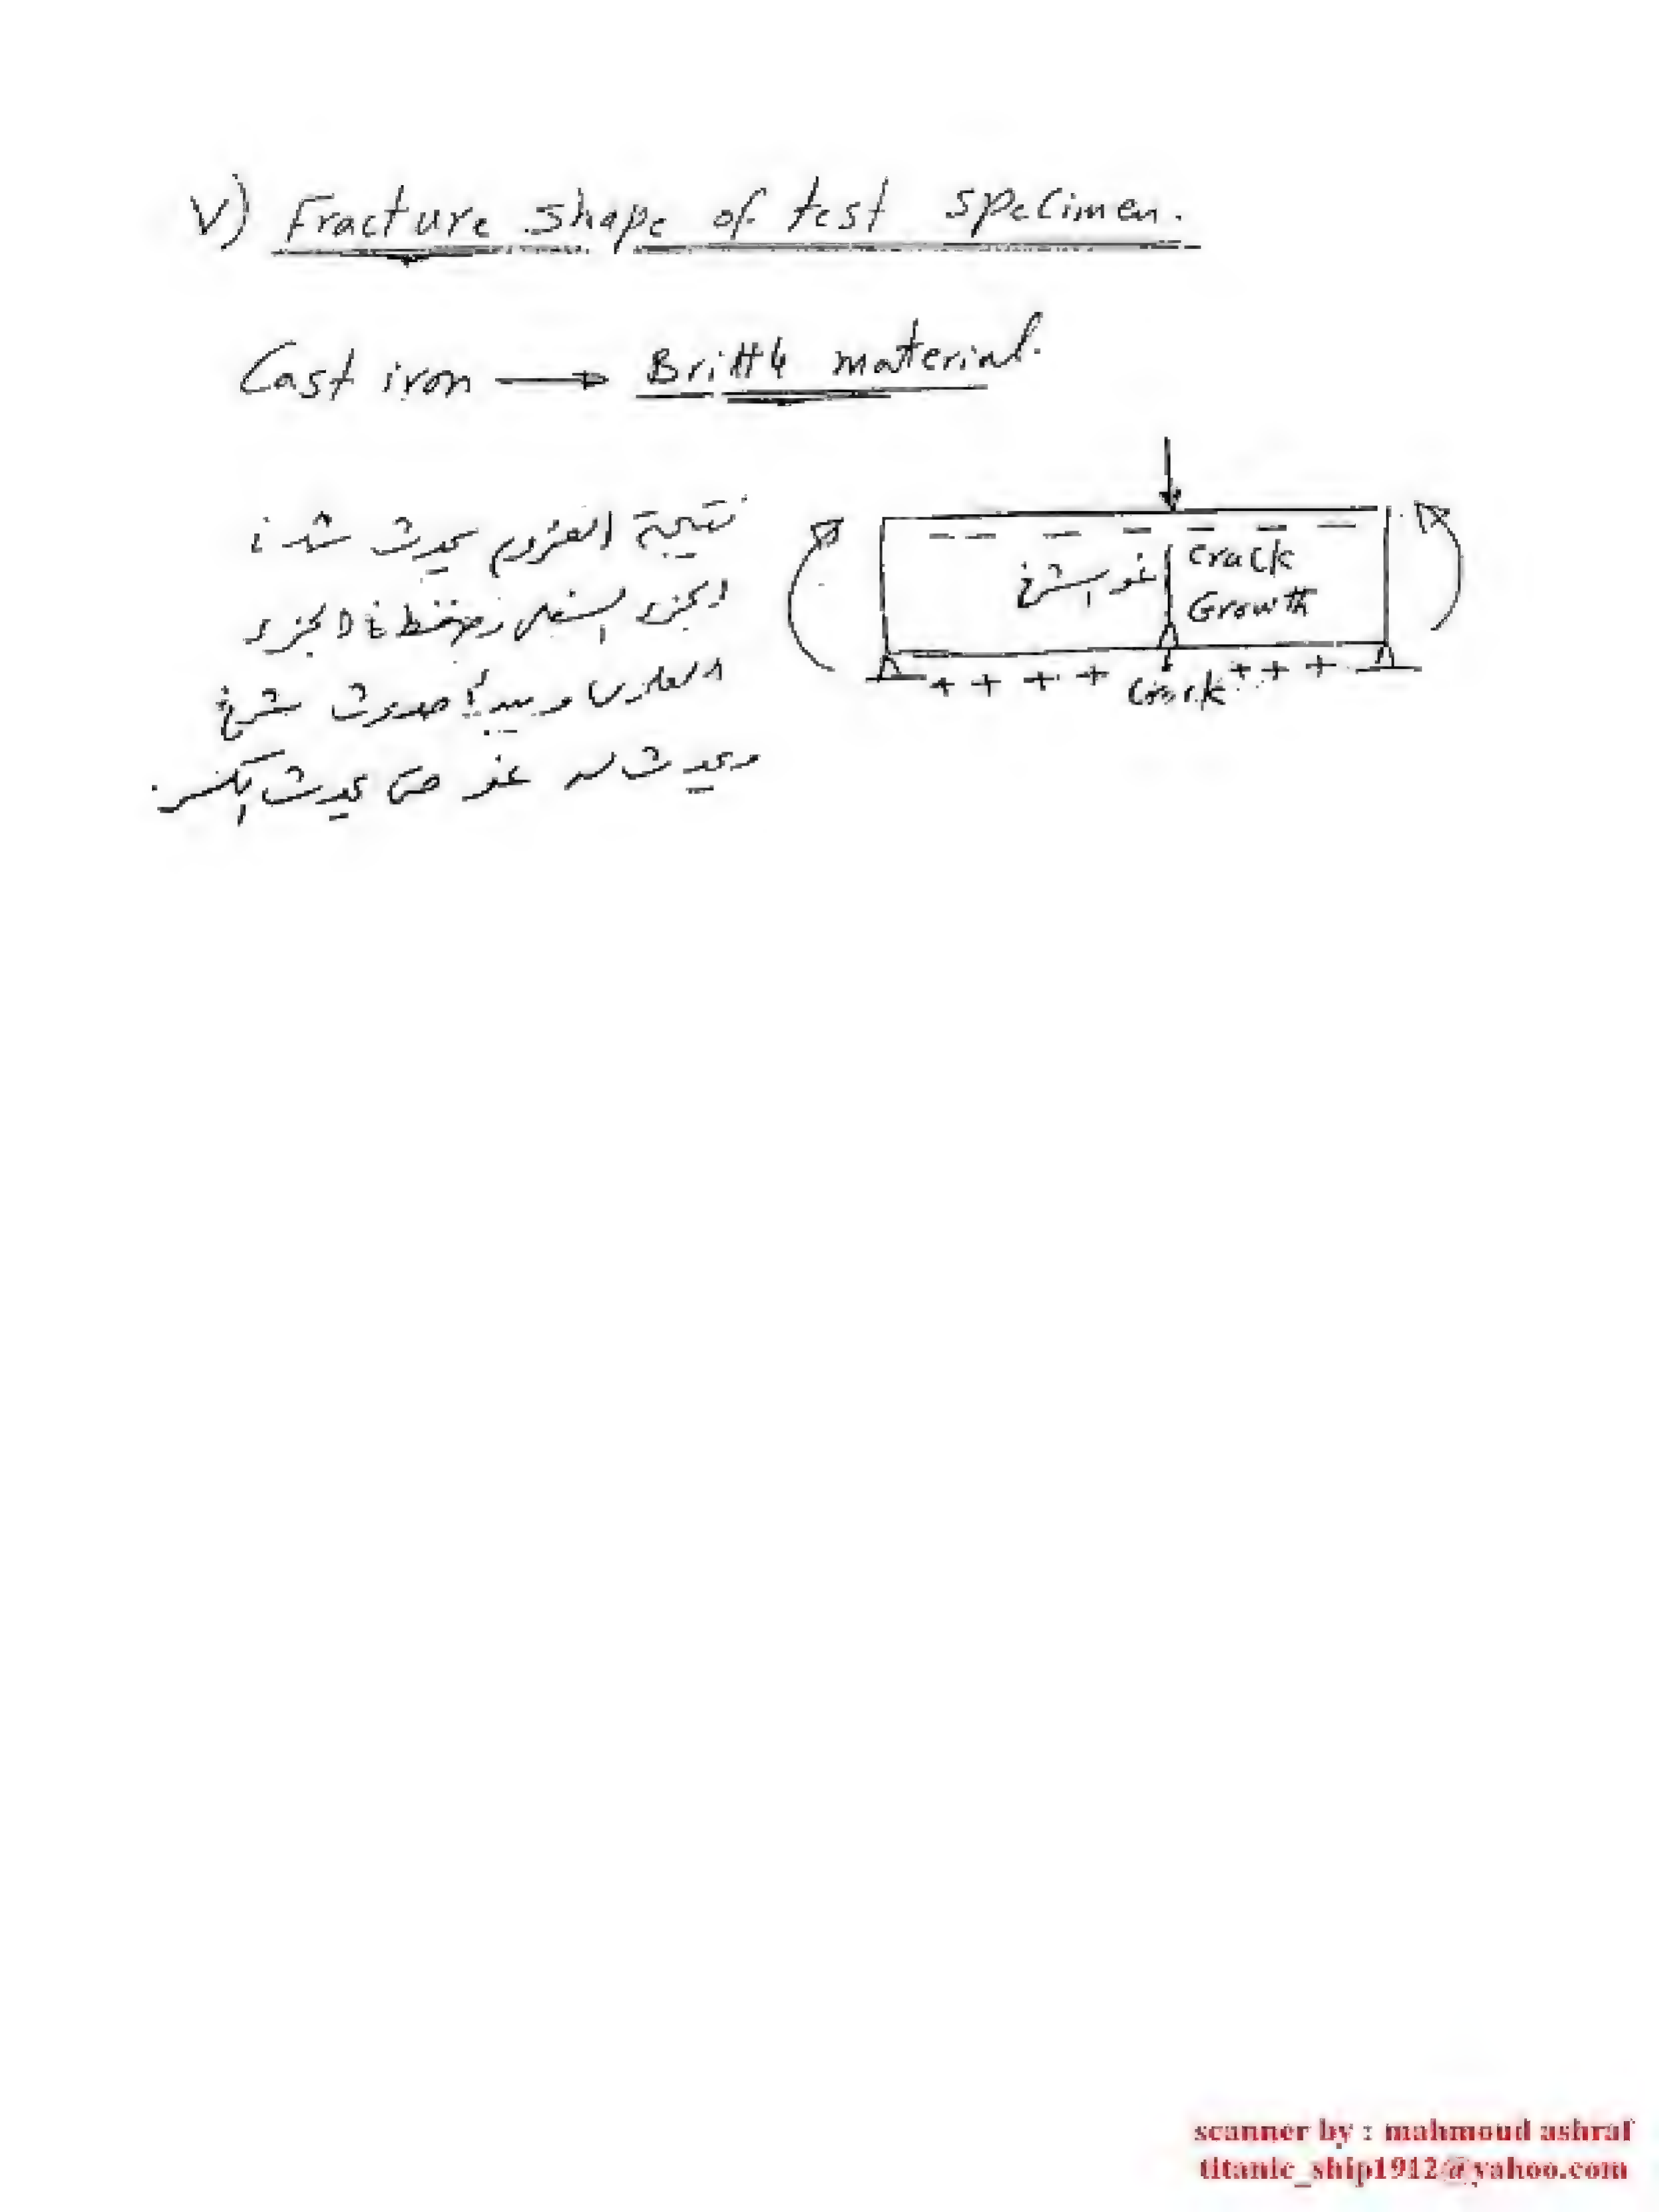 V) Fracture shape of test specimen.
Cast iron → Brittle material.
نتيجة العزوم يحدث شد في
الجزء السفلى وضغط في الجزء
العلوى ويبدأ حدوث شرخ
ويحدث له نمو حتى يحدث الكسر.
نمو الشرخ
Crack
Growth
- - - - - - -
+ + + + Crack + + +
scanner by : mahmoud ashraf
titanic_ship1912@yahoo.com